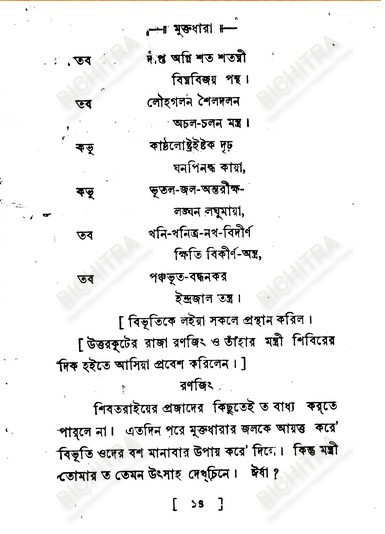 মুক্তধারা
তব দীপ্ত অগ্নি শত শতঘ্নী
বিঘ্নবিজয় পন্থ।
তব লৌহগলন শৈলদলন
অচল-চলন মন্ত্র।
কভু কাষ্ঠলোষ্ট্রইষ্টক দৃঢ়
ঘনপিনদ্ধ কায়া,
কভু ভূতল-জল-অন্তরীক্ষ-
লঙ্ঘন লঘুমায়া,
তব খনি-খনিত্র-নখ-বিদীর্ণ
ক্ষিতি বিকীর্ণ-অন্ত্র,
তব পঞ্চভূত-বন্ধনকর
ইন্দ্রজাল তন্ত্র।
[ বিভূতিকে লইয়া সকলে প্রস্থান করিল।
[ উত্তরকূটের রাজা রণজিৎ ও তাঁহার মন্ত্রী শিবিরের
দিক হইতে আসিয়া প্রবেশ করিলেন। ]
রণজিৎ
শিবতরাইয়ের প্রজাদের কিছুতেই ত বাধ্য করতে
পারলে না। এতদিন পরে মুক্তধারার জলকে আয়ত্ত করে'
বিভূতি ওদের বশ মানাবার উপায় করে' দিলে। কিন্তু মন্ত্রী
তোমার ত তেমন উৎসাহ দেখ্‌চিনে। ঈর্ষা?
[ ১৪ ]
BICHITRA
BICHITRA
BICHITRA
BICHITRA
BICHITRA
BICHITRA